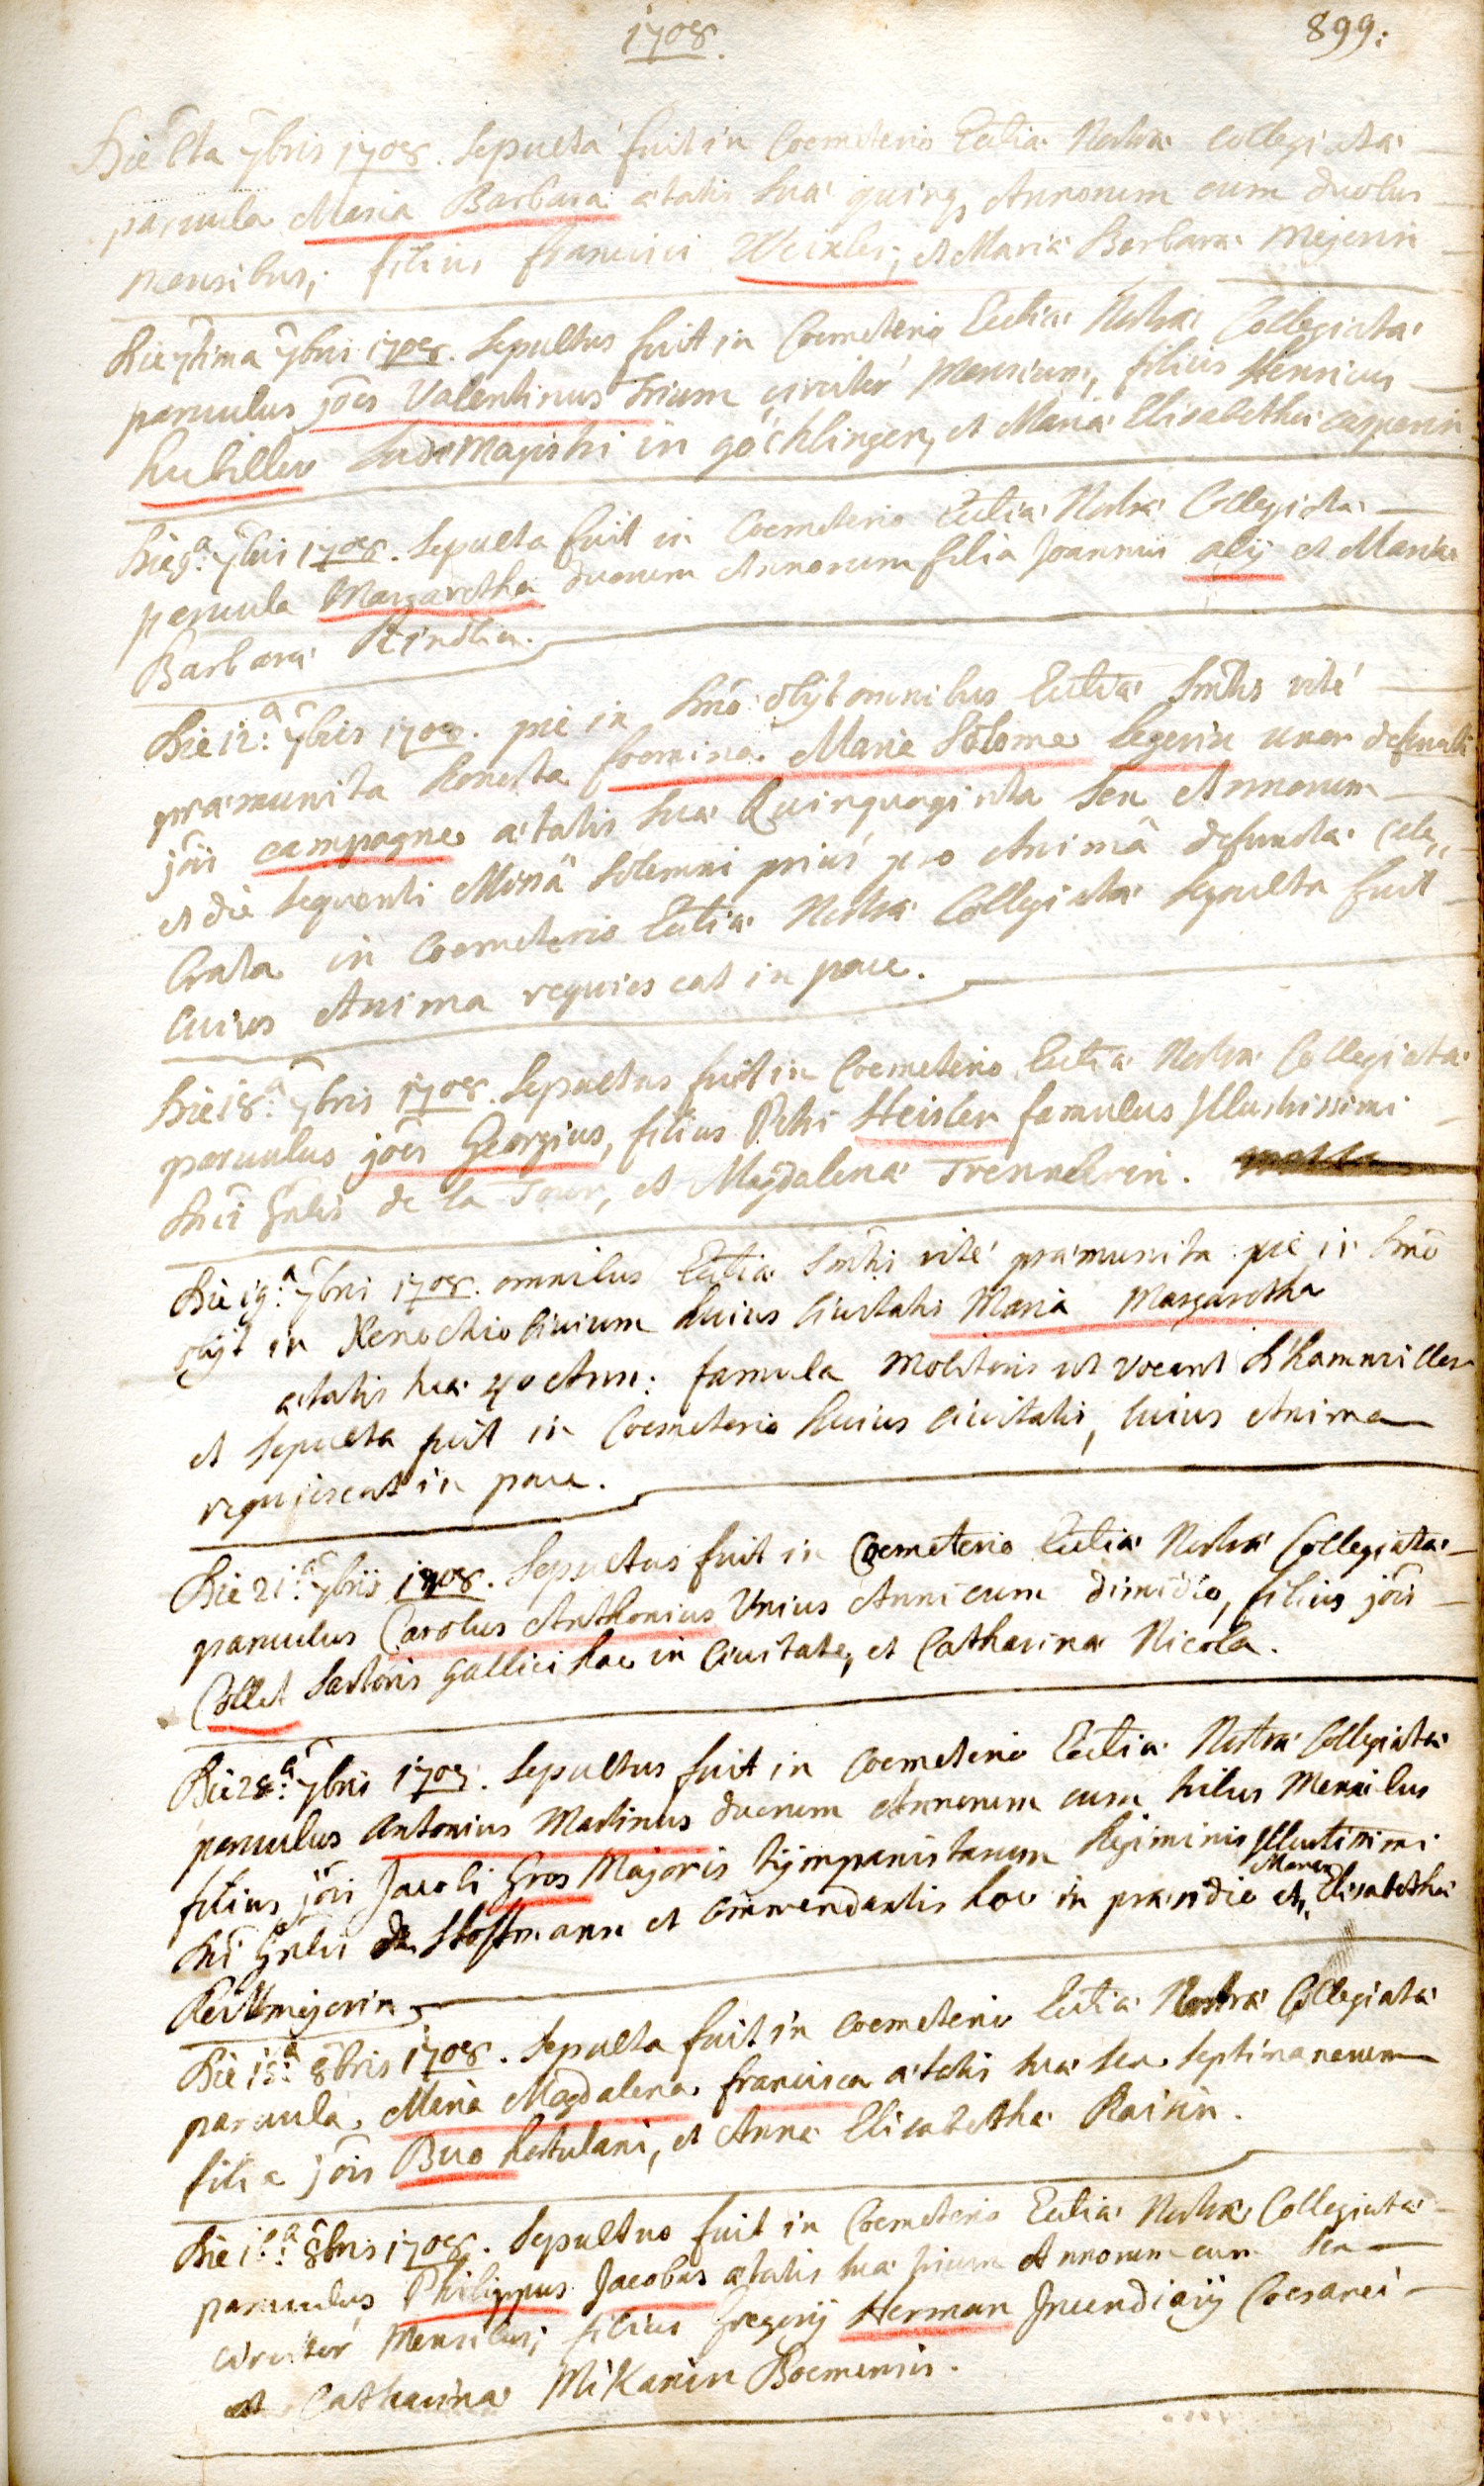 1708.
899:
Die 6ta 7bris 1708. Sepulta fuit in Coemeterio Eccliæ Nostræ Collegiatæ
parvula Maria Barbara ætatis suæ quinq, Annorum cum duobus
mensibus, filius Francisci Weixler, et Mariæ Barbaræ Meÿerin
Die 7tima 7bris 1708. Sepultus fuit in Coemeterio Eccliæ Nostræ Collegiatæ
parvulus jões Valentinus Trium circiter Mensium, filius Henricus
hubiller Ludimagistri in göchlingen, et Mariæ Elisabethæ casparin
Die 9a 7bris 1708. Sepulta fuit in Coemeterio Eccliæ Nostræ Collegiatæ
parvula Margaretha duorum Annorum filia Joannis alÿ et Mariæ
Barbaræ
Die 12a 7bris 1708. pie in Dno obijt omnibus Eccliæ Sactis rité
præmunita honesta foemina Maria Solome legerin uxor defuncti
jõis campagne ætatis suæ Quinquaginta sex Annorum
et die sequenti Missâ solemni prius pro Animâ defunctæ cele,,
brata in Coemeterio Eccliæ Nostræ Collegiatæ Sepulta fuit
cuius Anima requiescat in pace.
Die 18a 7bris 1708. Sepultus fuit in Coemeterio Eccliæ Nostræ Collegiatæ
parvulus jões Georgius, filius Petri Heisler famulus Jllustrissimi
Dni Gnlis de la Tour, et Magdalenæ Trennelrin.
Die 19a 7bris 1708. omnibus Eccliæ Sactis rité præmunita pie in Dno
obijt in Xenochio civium huius Civitatis Maria Margaretha
ætatis suæ 40 Ann: famula Molitoris ut vocant
et Sepulta fuit in Coemeterio huius Civitatis, cuius Anima
requiescat in pace.
Die 21a 7bris 1708. Sepultus fuit in Coemeterio Eccliæ Nostræ Collegiatæ
parvulus Carolus Anthonius Unius Anni cum dimidio, filius jõis
Collet Sartoris Gallici hac in Civitate, et Catharinæ Nicola.
Die 28a 7bris 1708. Sepultus fuit in Coemeterio Eccliæ Nostræ Collegiatæ
parvulus Antonius Martinus duorum Annorum cum tribus Mensibus
filius jõis Jacobi Gros Majoris tÿmpanistarum Regiminis Jllustissimi
Dni Gnlis de Hoffmann et commendantis hoc in præsidio et,, Maria Elisabethæ
Rev
Die 15a 8bris 1708. Sepulta fuit in Coemeterio Eccliæ Nostræ Collegiatæ
parvula Maria Magdalena francisca ætatis suæ sex Septimanarum
filia jõis Buo hortulani, et Annæ Elisabethæ Raisin.
Die 16a 8bris 1708. Sepultus fuit in Coemeterio Eccliæ Nostræ Collegiatæ
parvulus Philippus Jacobus ætatis suæ trium Annorum cum sex
circiter Mensibus, filius Gregorij Herman Jncendiarij Coesarei
et Catharinæ MiKanin Boemensis.